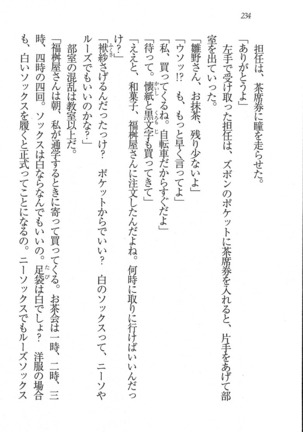 234
担任は、茶席券に瞳を走らせた。
「ありがとうよ」
左手で受け取った担任は、ズボンのポケットに茶席券を入れると、片手をあげて部
室を出ていった。
「雛野さん、お抹茶、残り少ないよ」
「ウソッ!?　も、もっと早く言ってよ」
「私、買ってくるね。自転車だからすぐだよ」
「待って。懐紙と黒文字も買ってきて」
「ええと、和菓子、福桝屋さんに注文したんだよね。何時に取りに行けばいいんだっ
け?」
「袱紗さげるんだったっけ?　ポケットからでいい?　白のソックスって、ニーソや
ルーズでもいいのかな?」
部室の混乱は教室以上だ。
「福桝屋さんは朝、私が通学するときに寄って買ってくる。お茶会は一時、二時、三
時、四時の四回。ソックスは白ならなんでもいいの。足袋は白でしょ?　洋服の場合
も、白いソックスを履くと正式ってことになるの。ニーソックスでもルーズソックス